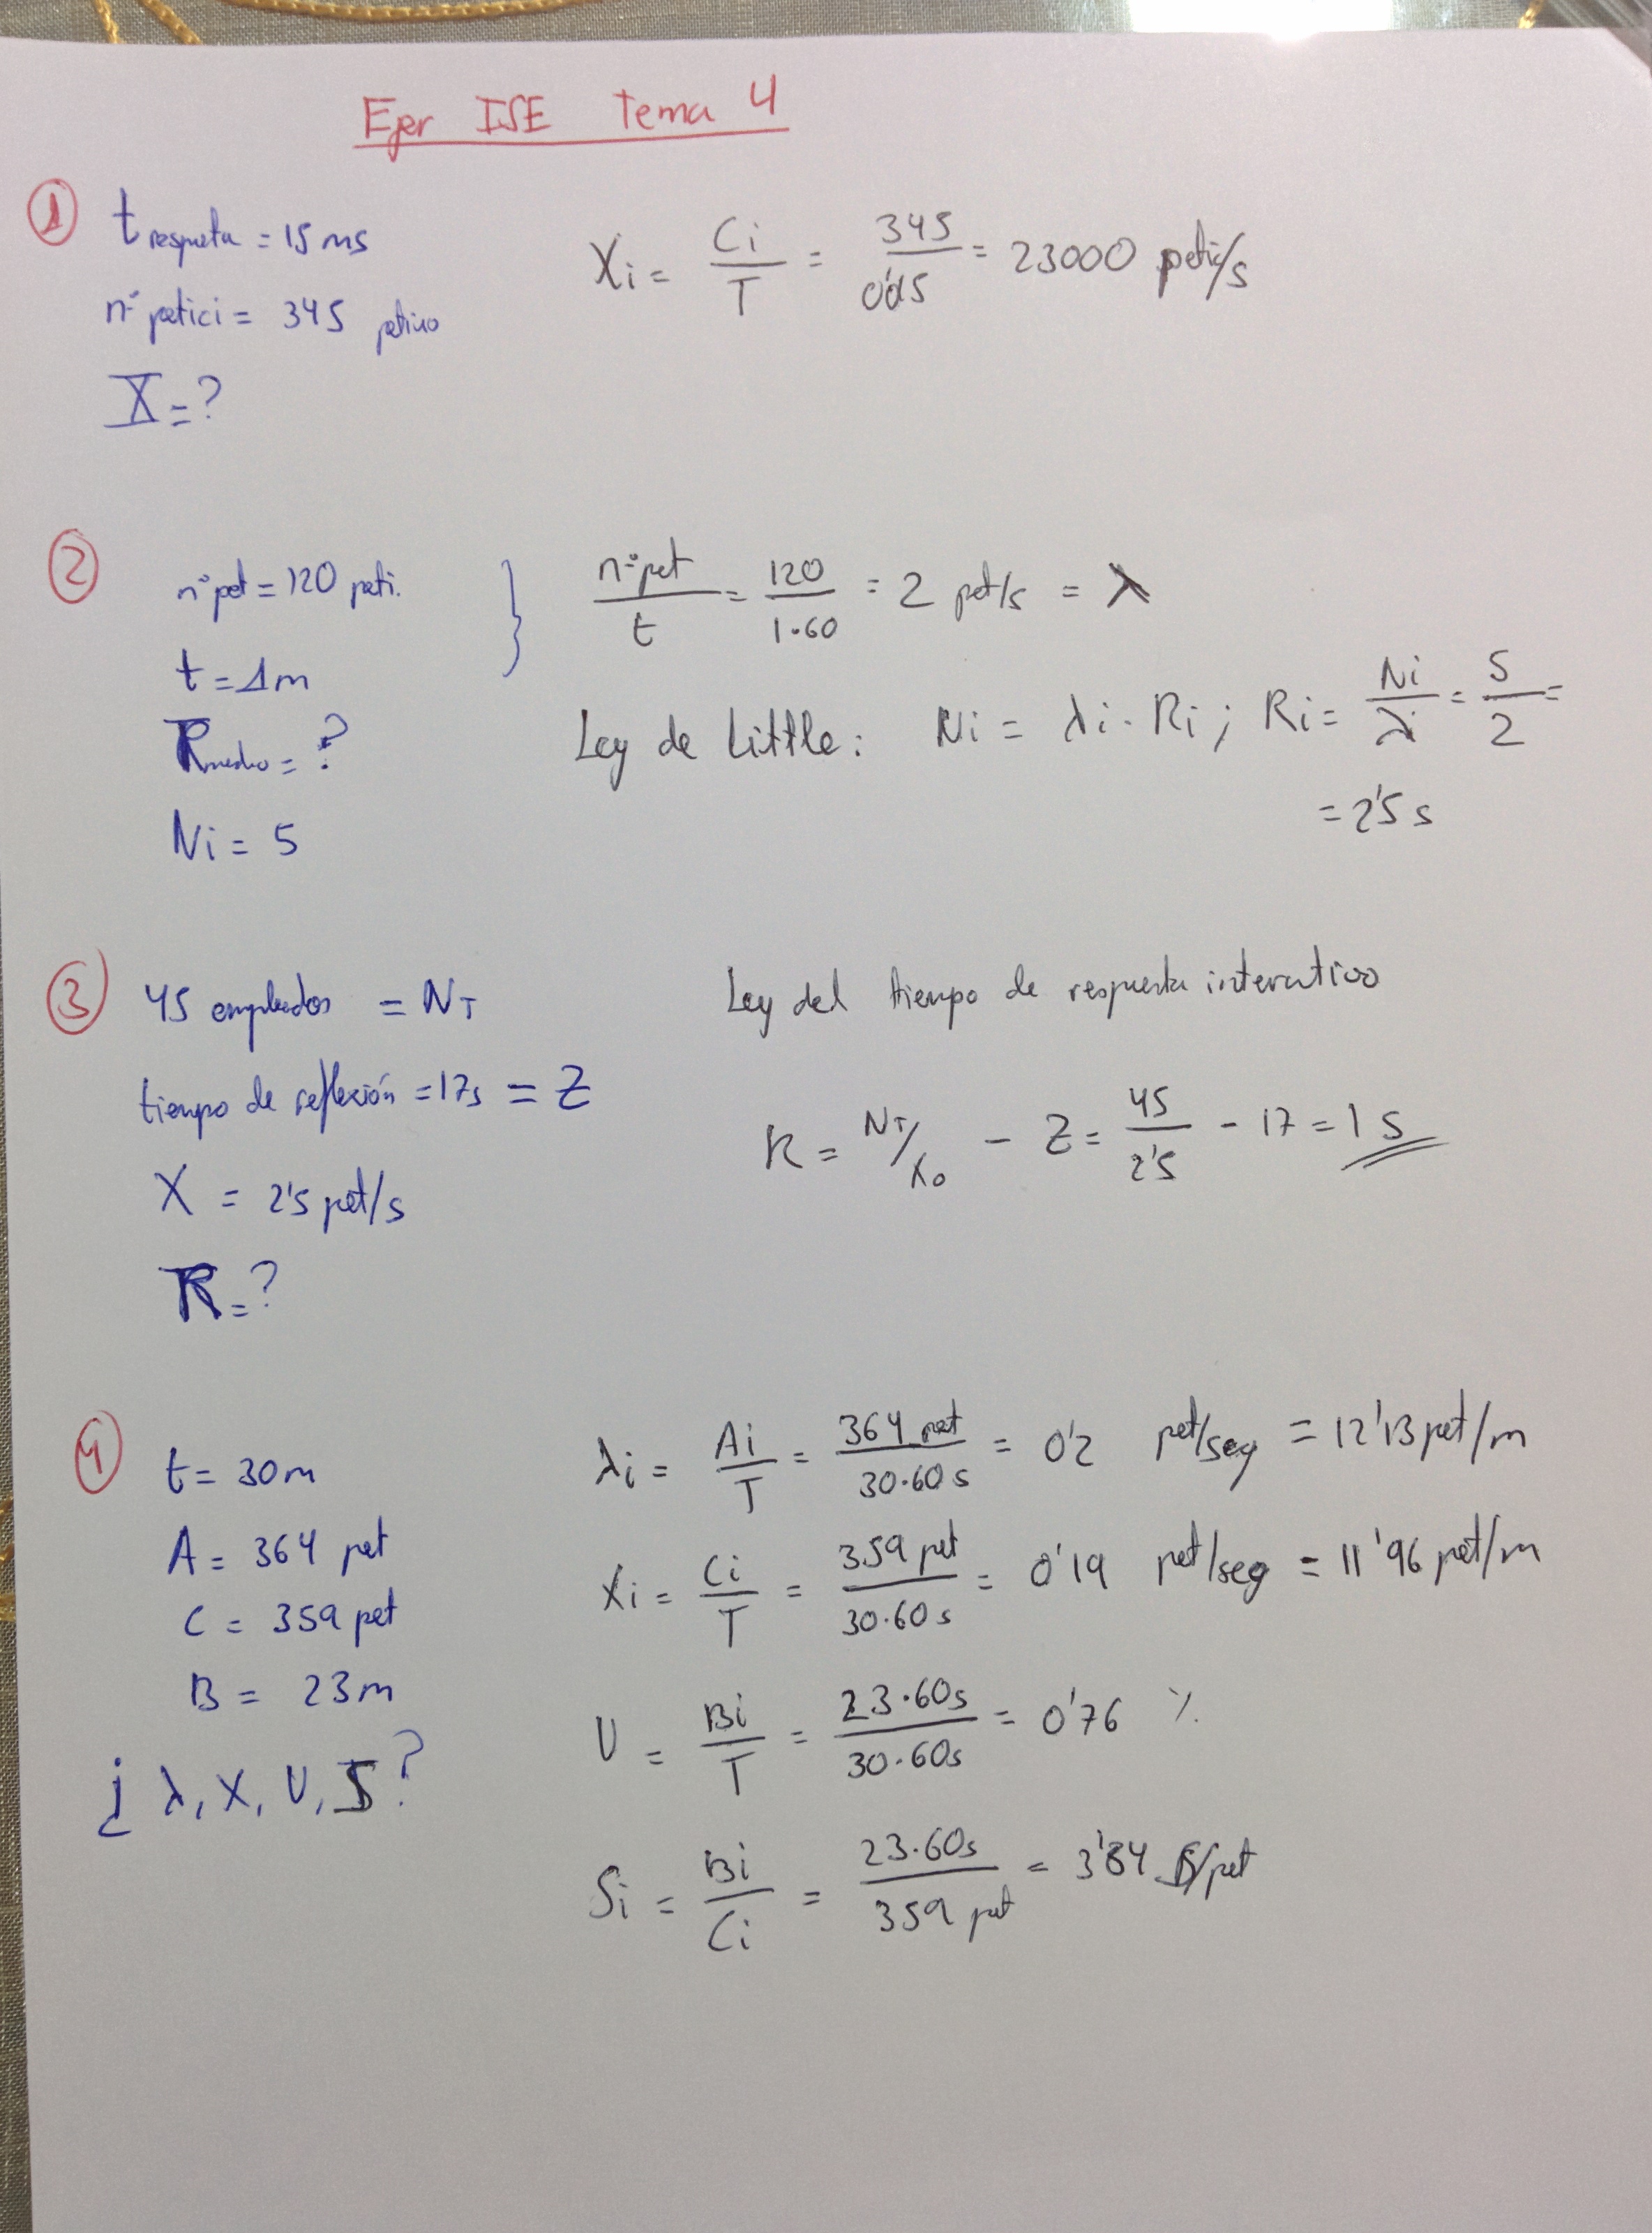 Ejer ISE Tema 4
1 t respueta = 15 ms
nº petici = 345 petivo
X = ?
Xi = Ci/T = 345/0'015 = 23000 petic/s
2 nº pet = 120 peti.
t = 1m
R medio = ?
Ni = 5
nº pet/t = 120/1·60 = 2 pet/s = λ
Ley de Little: Ni = λi · Ri ; Ri = Ni/λi = 5/2 =
= 2'5 s
3 45 empleados = NT
tiempo de reflexión = 17s = Z
X = 2'5 pet/s
R = ?
Ley del tiempo de respuesta interativo
R = NT/X0 - Z = 45/2'5 - 17 = 1 s
4 t = 30m
A = 364 pet
C = 359 pet
B = 23m
¿ λ, X, U, S ?
λi = Ai/T = 364 pet/30·60 s = 0'2 pet/seg = 12'13 pet/m
Xi = Ci/T = 359 pet/30·60 s = 0'19 pet/seg = 11'96 pet/m
U = Bi/T = 23·60s/30·60s = 0'76 %
Si = Bi/Ci = 23·60s/359 pet = 3'84 s/pet